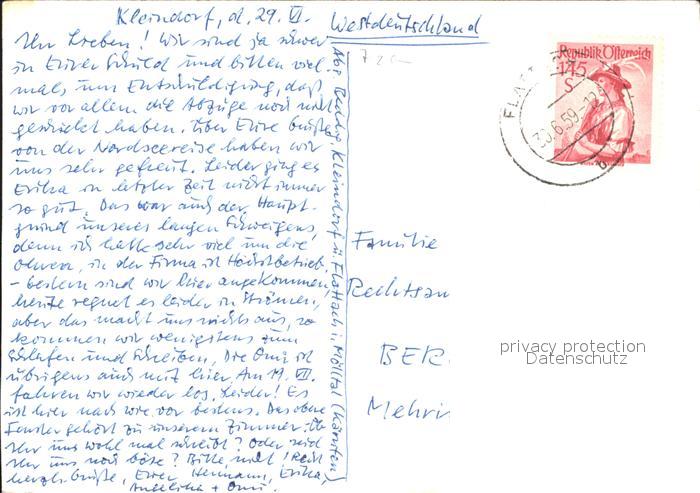 Kleindorf, d. 29. VI.
Ihr Lieben! Wir sind ja schwer
in Eurer Schuld und bitten viel-
mals um Entschuldigung, daß
wir vor allem die Abzüge noch nicht
geschickt haben. Über Eure Grüße
von der Nordseereise haben wir
uns sehr gefreut. Leider ging es
Erika in letzter Zeit nicht immer
so gut. Das war auch der Haupt-
grund unseres langen Schweigens,
denn ich hatte sehr viel um die
Ohren, in der Firma ist Hochbetrieb.
- gestern sind wir hier angekommen,
heute regnet es leider in Strömen,
aber das macht uns nichts aus, so
kommen wir wenigstens zum
Schlafen und Schreiben. Die Omi ist
übrigens auch mit hier. Am 19. VII.
fahren wir wieder los. Leider! Es
ist hier nach wie vor bestens. Das obere
Fenster gehört zu unserem Zimmer. Ob
Ihr uns wohl mal schreibt? Oder seid
Ihr uns noch böse? Bitte, nicht! Recht
herzl. Grüße, Euer Hermann, Erika,
Angelika + Omi.
Kleindorf ü. Flattach i. Mölltal (Kärnten)
Westdeutschland
Republik Österreich
1.45
S
FLAT
30.6.59-12
Familie
Rechtsan
BER
Mehrin
privacy protection
Datenschutz